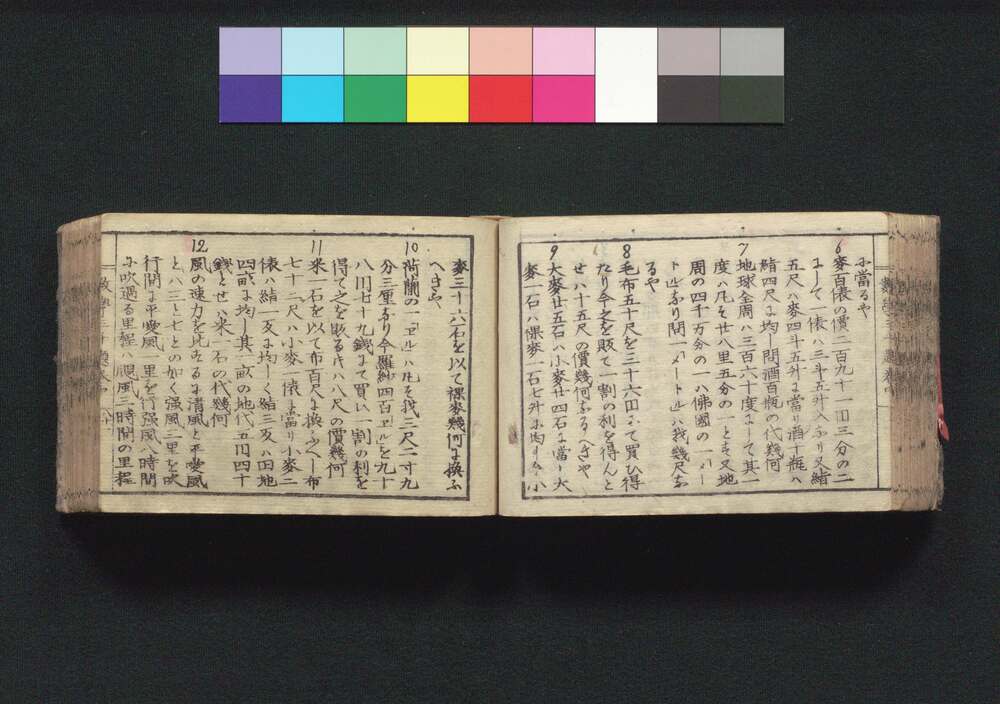 ニ當るや
6 麥百俵の價二百九十一円三分の二
にして一俵ハ三斗五升入なり又緒
五尺ハ麥四斗五升に當り酒十瓶ハ
緒四尺に均し問酒百瓶の代幾何
7 地球全周ハ三百六十度にして其一
度ハ凡そ廿八里五分の一とす又地
周の四千万分の一ハ佛國の一メー
トルなり問一メートルハ我幾尺な
るや
8 毛布五十尺を三十六円にて買ひ得
たり今之を販て一割の利を得んと
せハ十五尺の價幾何なるへきや
9 大麥廿五石ハ小麥廿四石に當り大
麥一石ハ倮麥一石七升に均し小
麥三十六石を以て裸麥幾何に換ふ
へきや
10 荷蘭の一エルハ凡そ我三尺二寸九
分三厘なり今羅紗四百エルを九十
八円廿十九錢にて買い一割の利を
得て之を販る片ハ八尺の價幾何
11 米一石を以て布百尺に換ふへし布
七十二尺ハ小麥一俵に當り小麥二
俵ハ絹一反に均しく絹三反ハ田地
四畝に均し其一畝の地代五円四十
錢とせハ米一石の代幾何
12 風の速力を比するに清風と平變風
とハ三と七との如く强風二里を吹
行間に平變風一里を行强風八時間
に吹過る里程ハ颶風三時間の里程